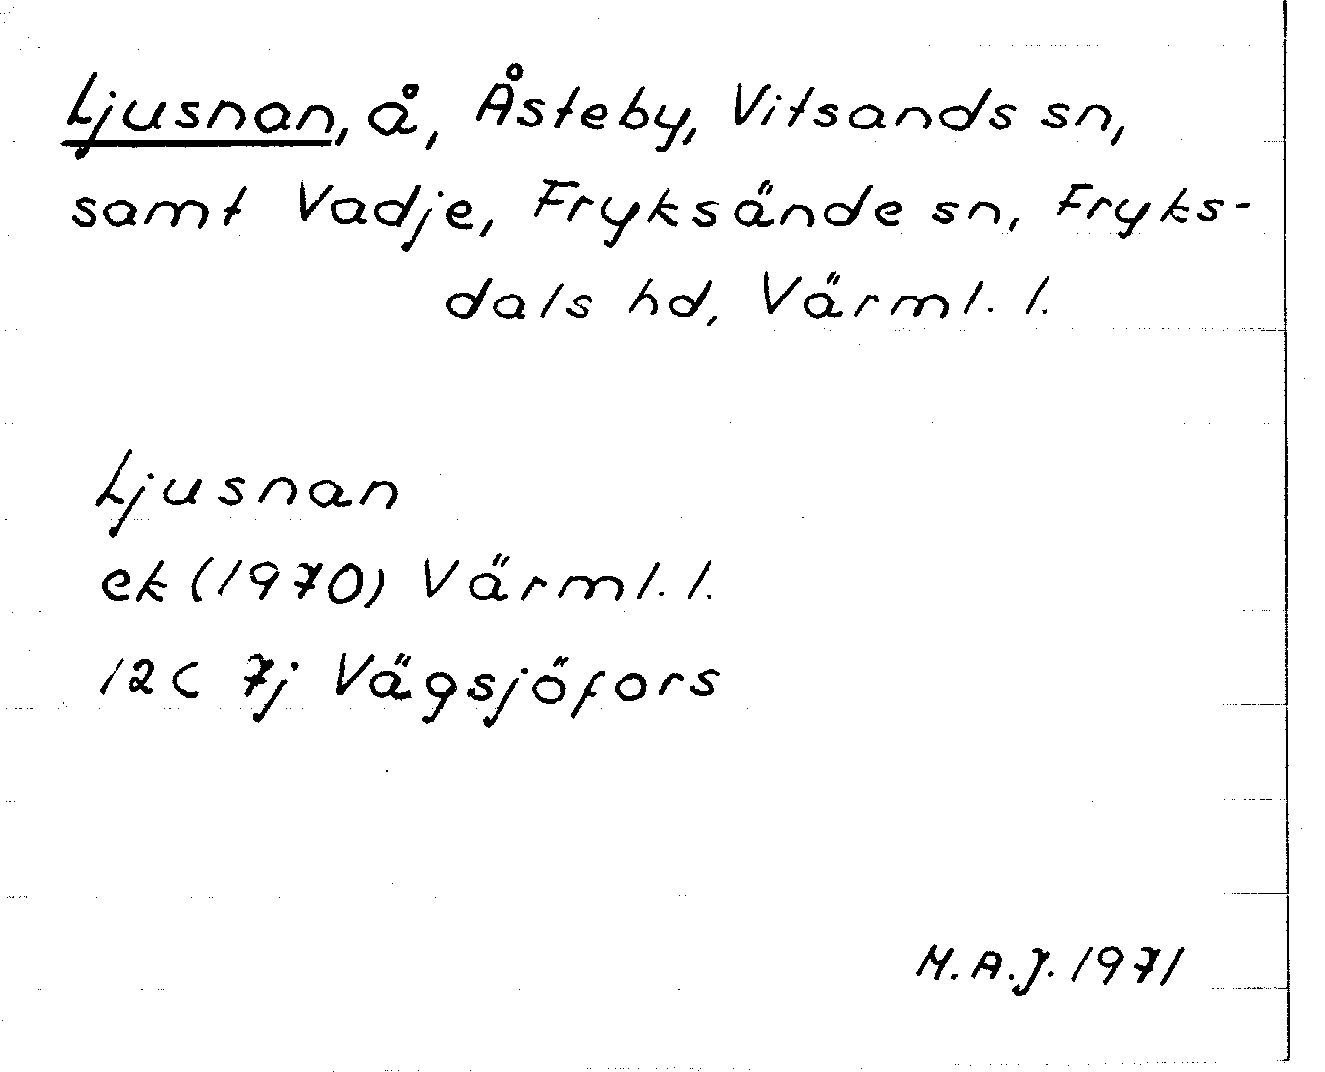 Ljusnan, å, Åsteby, Vitsands sn,
samt Vadje, Fryksände sn, Fryks-
dals hd, Värml. l.
Ljusnan
ek (1970) Värml. l.
12C 7j Vägsjöfors
M.A.J. 1971